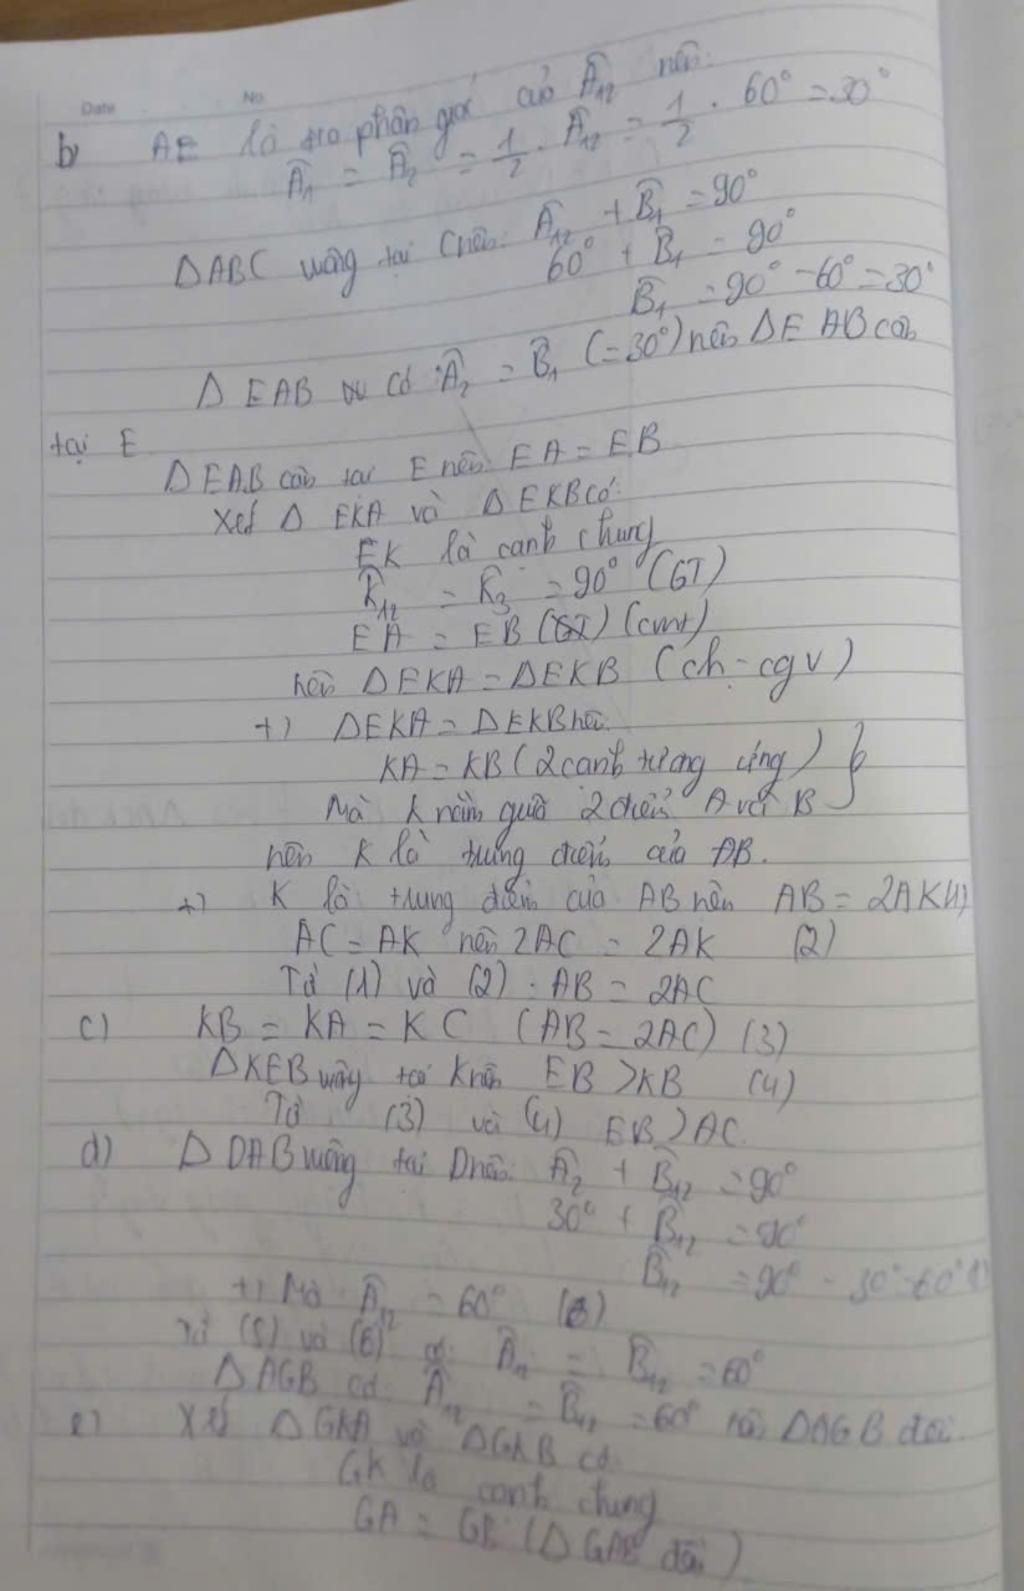 Date No
b) AE là tia phân giác của Â₁₂ nên:
Â₁ = Â₂ = 1/2 . Â₁₂ = 1/2 . 60° = 30°
ΔABC vuông tại C nên: Â₁₂ + B̂₁ = 90°
60° + B̂₁ = 90°
B̂₁ = 90° - 60° = 30°
Δ EAB có Â₂ = B̂₁ (= 30°) nên ΔE AB cân
tại E
ΔEAB cân tại E nên: EA = EB
Xét Δ EKA và ΔEKB có:
EK là cạnh chung
K̂₁₂ = K̂₃ = 90° (GT)
EA = EB (cmt)
nên ΔEKA = ΔEKB (ch - cgv)
+) ΔEKA = ΔEKB nên:
KA = KB (2 cạnh tương ứng) }
Mà K nằm giữa 2 điểm A với B
nên K là trung điểm của AB.
+) K là trung điểm của AB nên AB = 2AK (1)
AC = AK nên 2AC = 2AK (2)
Từ (1) và (2) : AB = 2AC
c) KB = KA = KC (AB = 2AC) (3)
ΔKEB vuông tại K nên EB > KB (4)
Từ (3) và (4) EB > AC.
d) Δ DAB vuông tại D nên: Â₂ + B̂₁₂ = 90°
30° + B̂₁₂ = 90°
B̂₁₂ = 90° - 30° = 60°
+) Mà Â₁₂ = 60° (6)
Từ (5) và (6) Â₁₂ = B̂₁₂ = 60°
ΔAGB có Â₁₂ = B̂₁₂ = 60° nên ΔAGB đều.
e) Xét ΔGKA và ΔGKB có
GK là cạnh chung
GA = GB (ΔGAB đều)